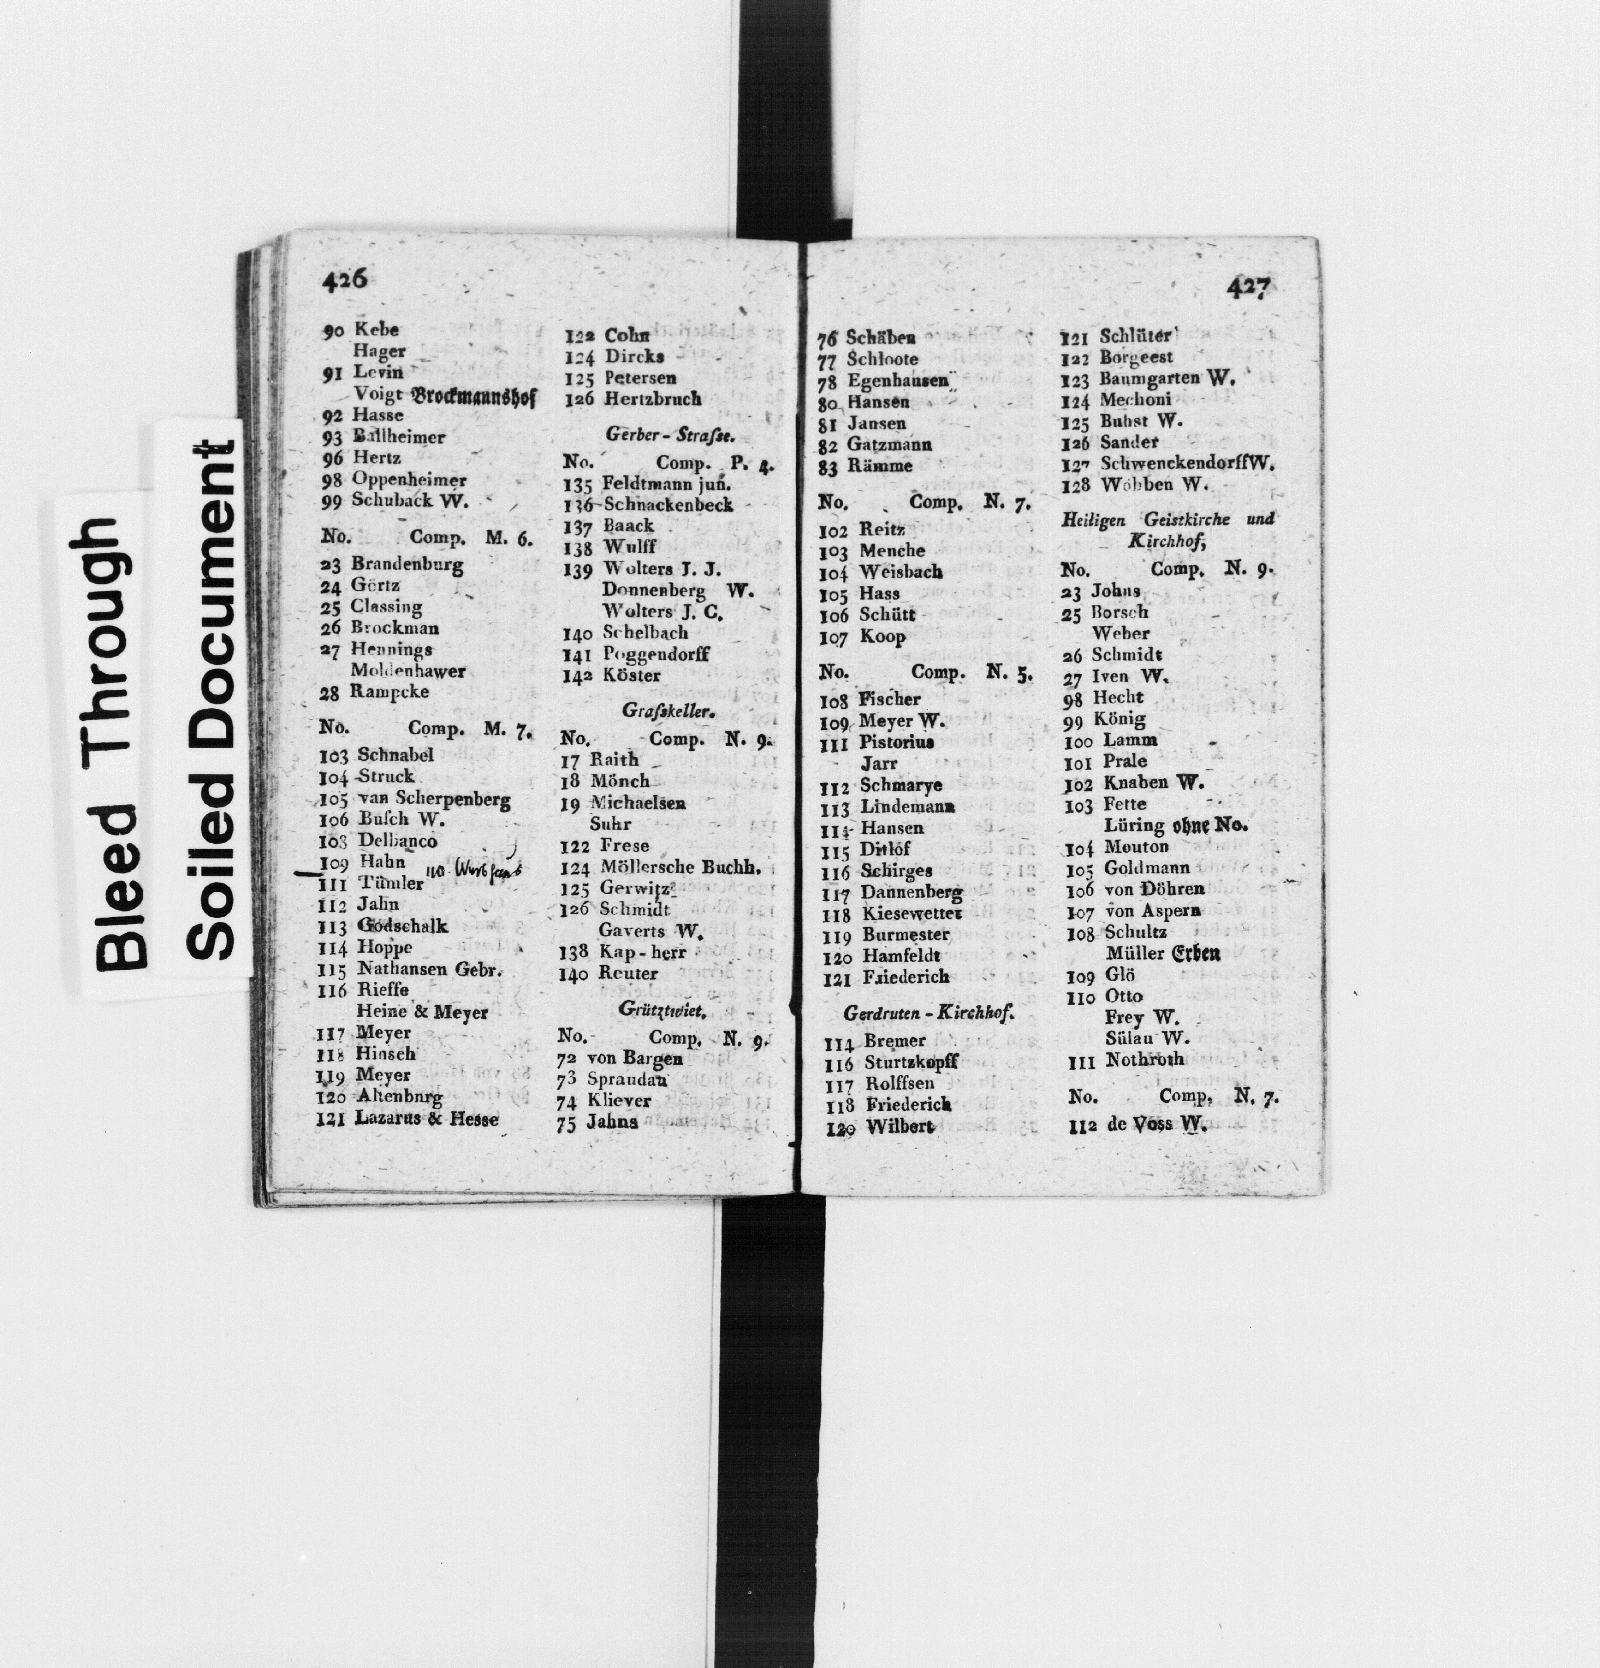 Bleed Through
Soiled Document
426
90 Kebe
Hager
91 Levin
Voigt Brockmannshof
92 Hasse
93 Ballheimer
96 Hertz
98 Oppenheimer
99 Schuback W.
No. Comp. M. 6.
23 Brandenburg
24 Görtz
25 Classing
26 Brockman
27 Hennings
Moldenhawer
28 Rampcke
No. Comp. M. 7.
103 Schnabel
104 Struck
105 van Scherpenberg
106 Buſch W.
108 Delbanco
109 Hahn
110
111 Tümler
112 Jahn
113 Godschalk
114 Hoppe
115 Nathansen Gebr.
116 Rieffe
Heine & Meyer
117 Meyer
118 Hinsch
119 Meyer
120 Altenbnrg
121 Lazarus & Hesse
122 Cohn
124 Dircks
125 Petersen
126 Hertzbruch
Gerber-Straſse.
No. Comp. P. 4.
135 Feldtmann jun.
136 Schnackenbeck
137 Baack
138 Wulff
139 Wolters J. J.
Donnenberg W.
Wolters J. C.
140 Schelbach
141 Poggendorff
142 Köster
Graſskeller.
No. Comp. N. 9.
17 Raith
18 Mönch
19 Michaelsen
Suhr
122 Frese
124 Möllersche Buchh.
125 Gerwitz
126 Schmidt
Gaverts W.
138 Kap-herr
140 Reuter
Grütztwiet.
No. Comp. N. 9.
72 von Bargen
73 Spraudau
74 Kliever
75 Jahns
427
76 Schäben
77 Schloote
78 Egenhausen
80 Hansen
81 Jansen
82 Gatzmann
83 Rämme
No. Comp. N. 7.
102 Reitz
103 Menche
104 Weisbach
105 Hass
106 Schütt
107 Koop
No. Comp. N. 5.
108 Fischer
109 Meyer W.
111 Pistorius
Jarr
112 Schmarye
113 Lindemann
114 Hansen
115 Ditlof
116 Schirges
117 Dannenberg
118 Kiesewetter
119 Burmester
120 Hamfeldt
121 Friederich
Gerdruten-Kirchhof.
114 Bremer
116 Sturtzkopff
117 Rolffsen
118 Friederich
120 Wilbert
121 Schlüter
122 Borgeest
123 Baumgarten W.
124 Mechoni
125 Buhst W.
126 Sander
127 SchwenckendorffW.
128 Wöbben W.
Heiligen Geistkirche und
Kirchhof,
No. Comp. N. 9.
23 Johns
25 Borsch
Weber
26 Schmidt
27 Iven W.
98 Hecht
99 König
100 Lamm
101 Prale
102 Knaben W.
103 Fette
Lüring ohne No.
104 Mouton
105 Goldmann
106 von Döhren
107 von Aspern
108 Schultz
Müller Erben
109 Glö
110 Otto
Frey W.
Sülau W.
111 Nothroth
No. Comp. N. 7.
112 de Voss W.